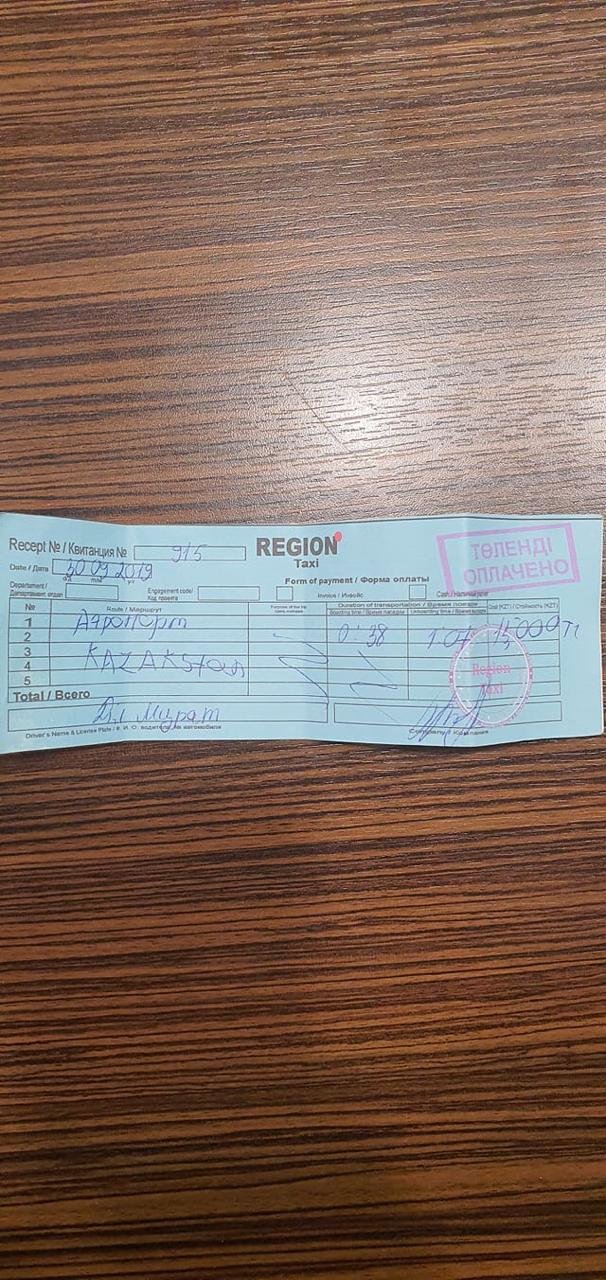 Recept № / Квитанция № 915
REGION
Taxi
ТӨЛЕНДІ
ОПЛАЧЕНО
Date / Дата 30 09 2019
Form of payment / Форма оплаты
Department / Департамент, отдел
Engagement code / Код проекта
Invoice / Инвойс
Cash / Наличные
№ Route / Маршрут Duration of transportation / Время поездки Cost (KZT) / Стоимость (KZT)
Boarding time / Время посадки
1 Аэропорт
2 0:38 15000 Тг
3 KAZAKstan
4
5
Region
taxi
Total / Всего
Мурат
Driver's Name & License Plate / Ф. И. О. водителя, № автомобиля
Company / Компания